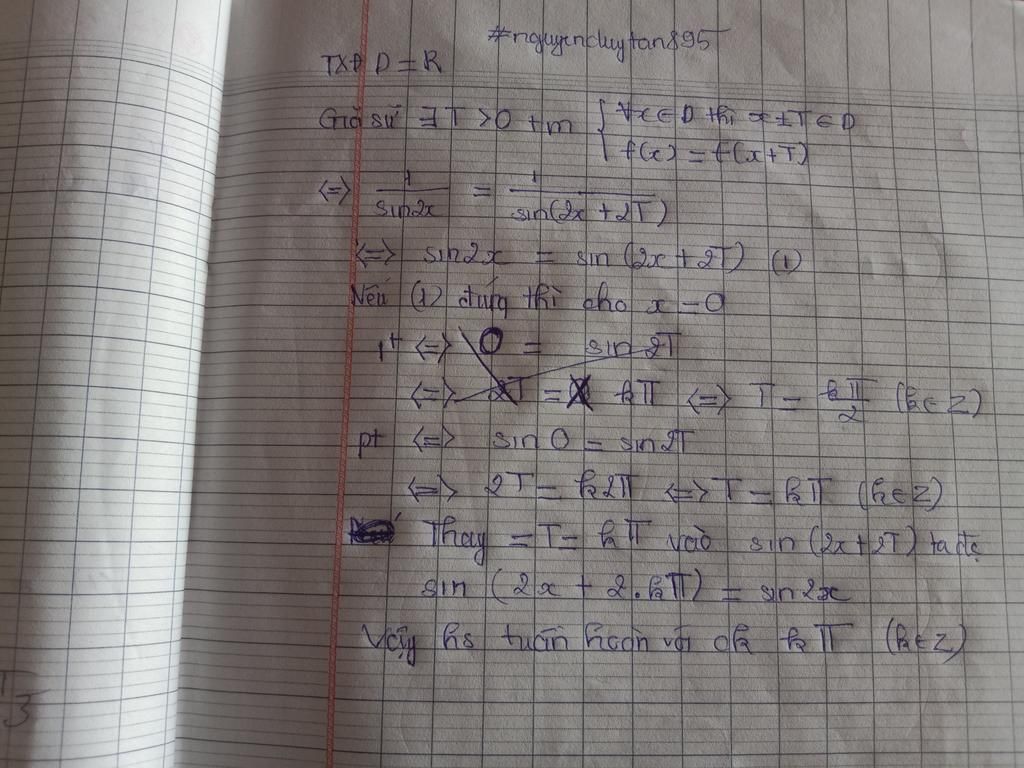 #nguyenduytan895
TXĐ D = R
Giả sử ∃ T > 0 t m { ∀x ∈ D thì x ± T ∈ D
f(x) = f(x+T)
<=> 1/sin2x = 1/sin(2x + 2T)
<=> sin2x = sin (2x + 2T) (1)
Nếu (1) đúng thì cho x = 0
pt <=> 0 = sin 2T
<=> 2T = kπ <=> T = kπ/2 (k ∈ Z)
pt <=> sin 0 = sin2T
<=> 2T = k2π <=> T = kπ (k ∈ Z)
Thay = T = kπ vào sin (2x + 2T) ta đc
sin (2x + 2.kπ) = sin 2x
Vậy hs tuần hoàn với ck kπ (k ∈ Z)